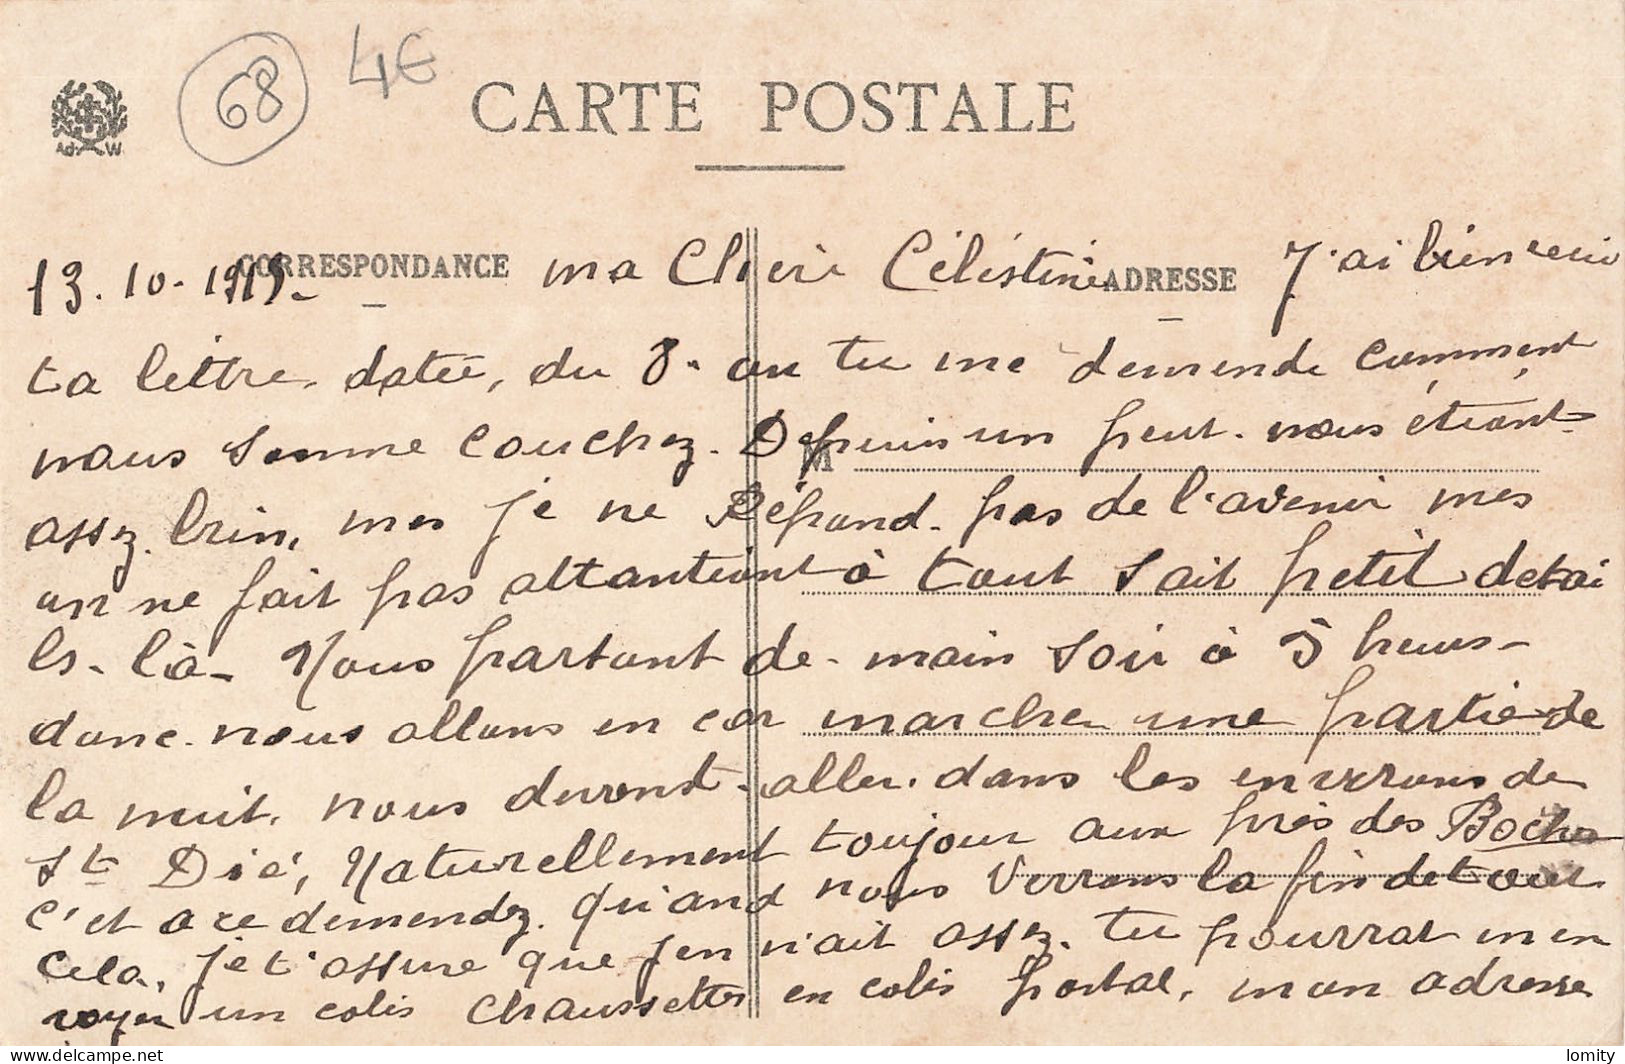 68 4€
CARTE POSTALE
Ad W
CORRESPONDANCE ADRESSE
13. 10. 1915. ma Cheri Céléstine J'ai bien recu
ta lettre datée, du 8. ou tu me demende comment
nous somme couchez. Depuis un peut. nous étiont
M
assez bien, mes je ne Répond. pas de l'avenir mes
on ne fait pas attantiont à tout sait petit detai
ls. là. Nous partont de. main soir à 5 heurs-
donc. nous allons en cor marcher une partie de
la nuit. nous devont. aller. dans les environs de
St Dié, Naturellement toujour aux près des Boches
c'et a ce demendez. Quand nous verrons la fin de tout
cela, je t'assure que j'en n'ait assez. tu pourrat m'en
voyer un colis chaussettes en colis postal, mon adresse
lomity
www.delcampe.net